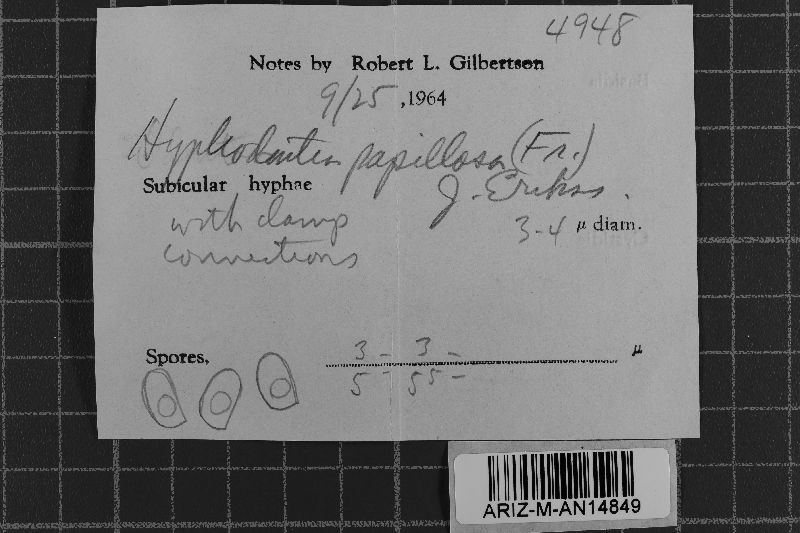 4948
Notes by Robert L. Gilbertson
9/25, 1964
Hyphodontia papillosa (Fr.)
J. Erikss.
Subicular hyphae
with clamp
connections
3-4 µ diam.
Spores,
3 - 3 -
5 - 5 5 -
µ
ARIZ-M-AN14849